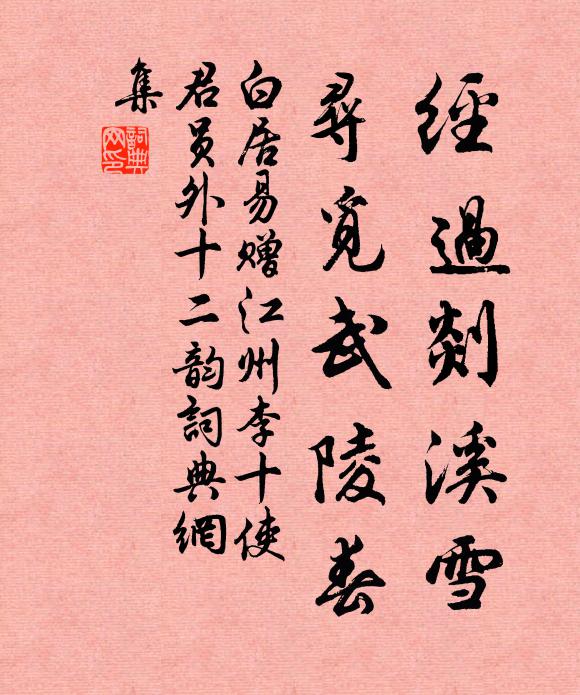 經過剡溪雪
尋覓武陵春
白居易贈江州李十使
君員外十二韵詞典網
集
詞典网印